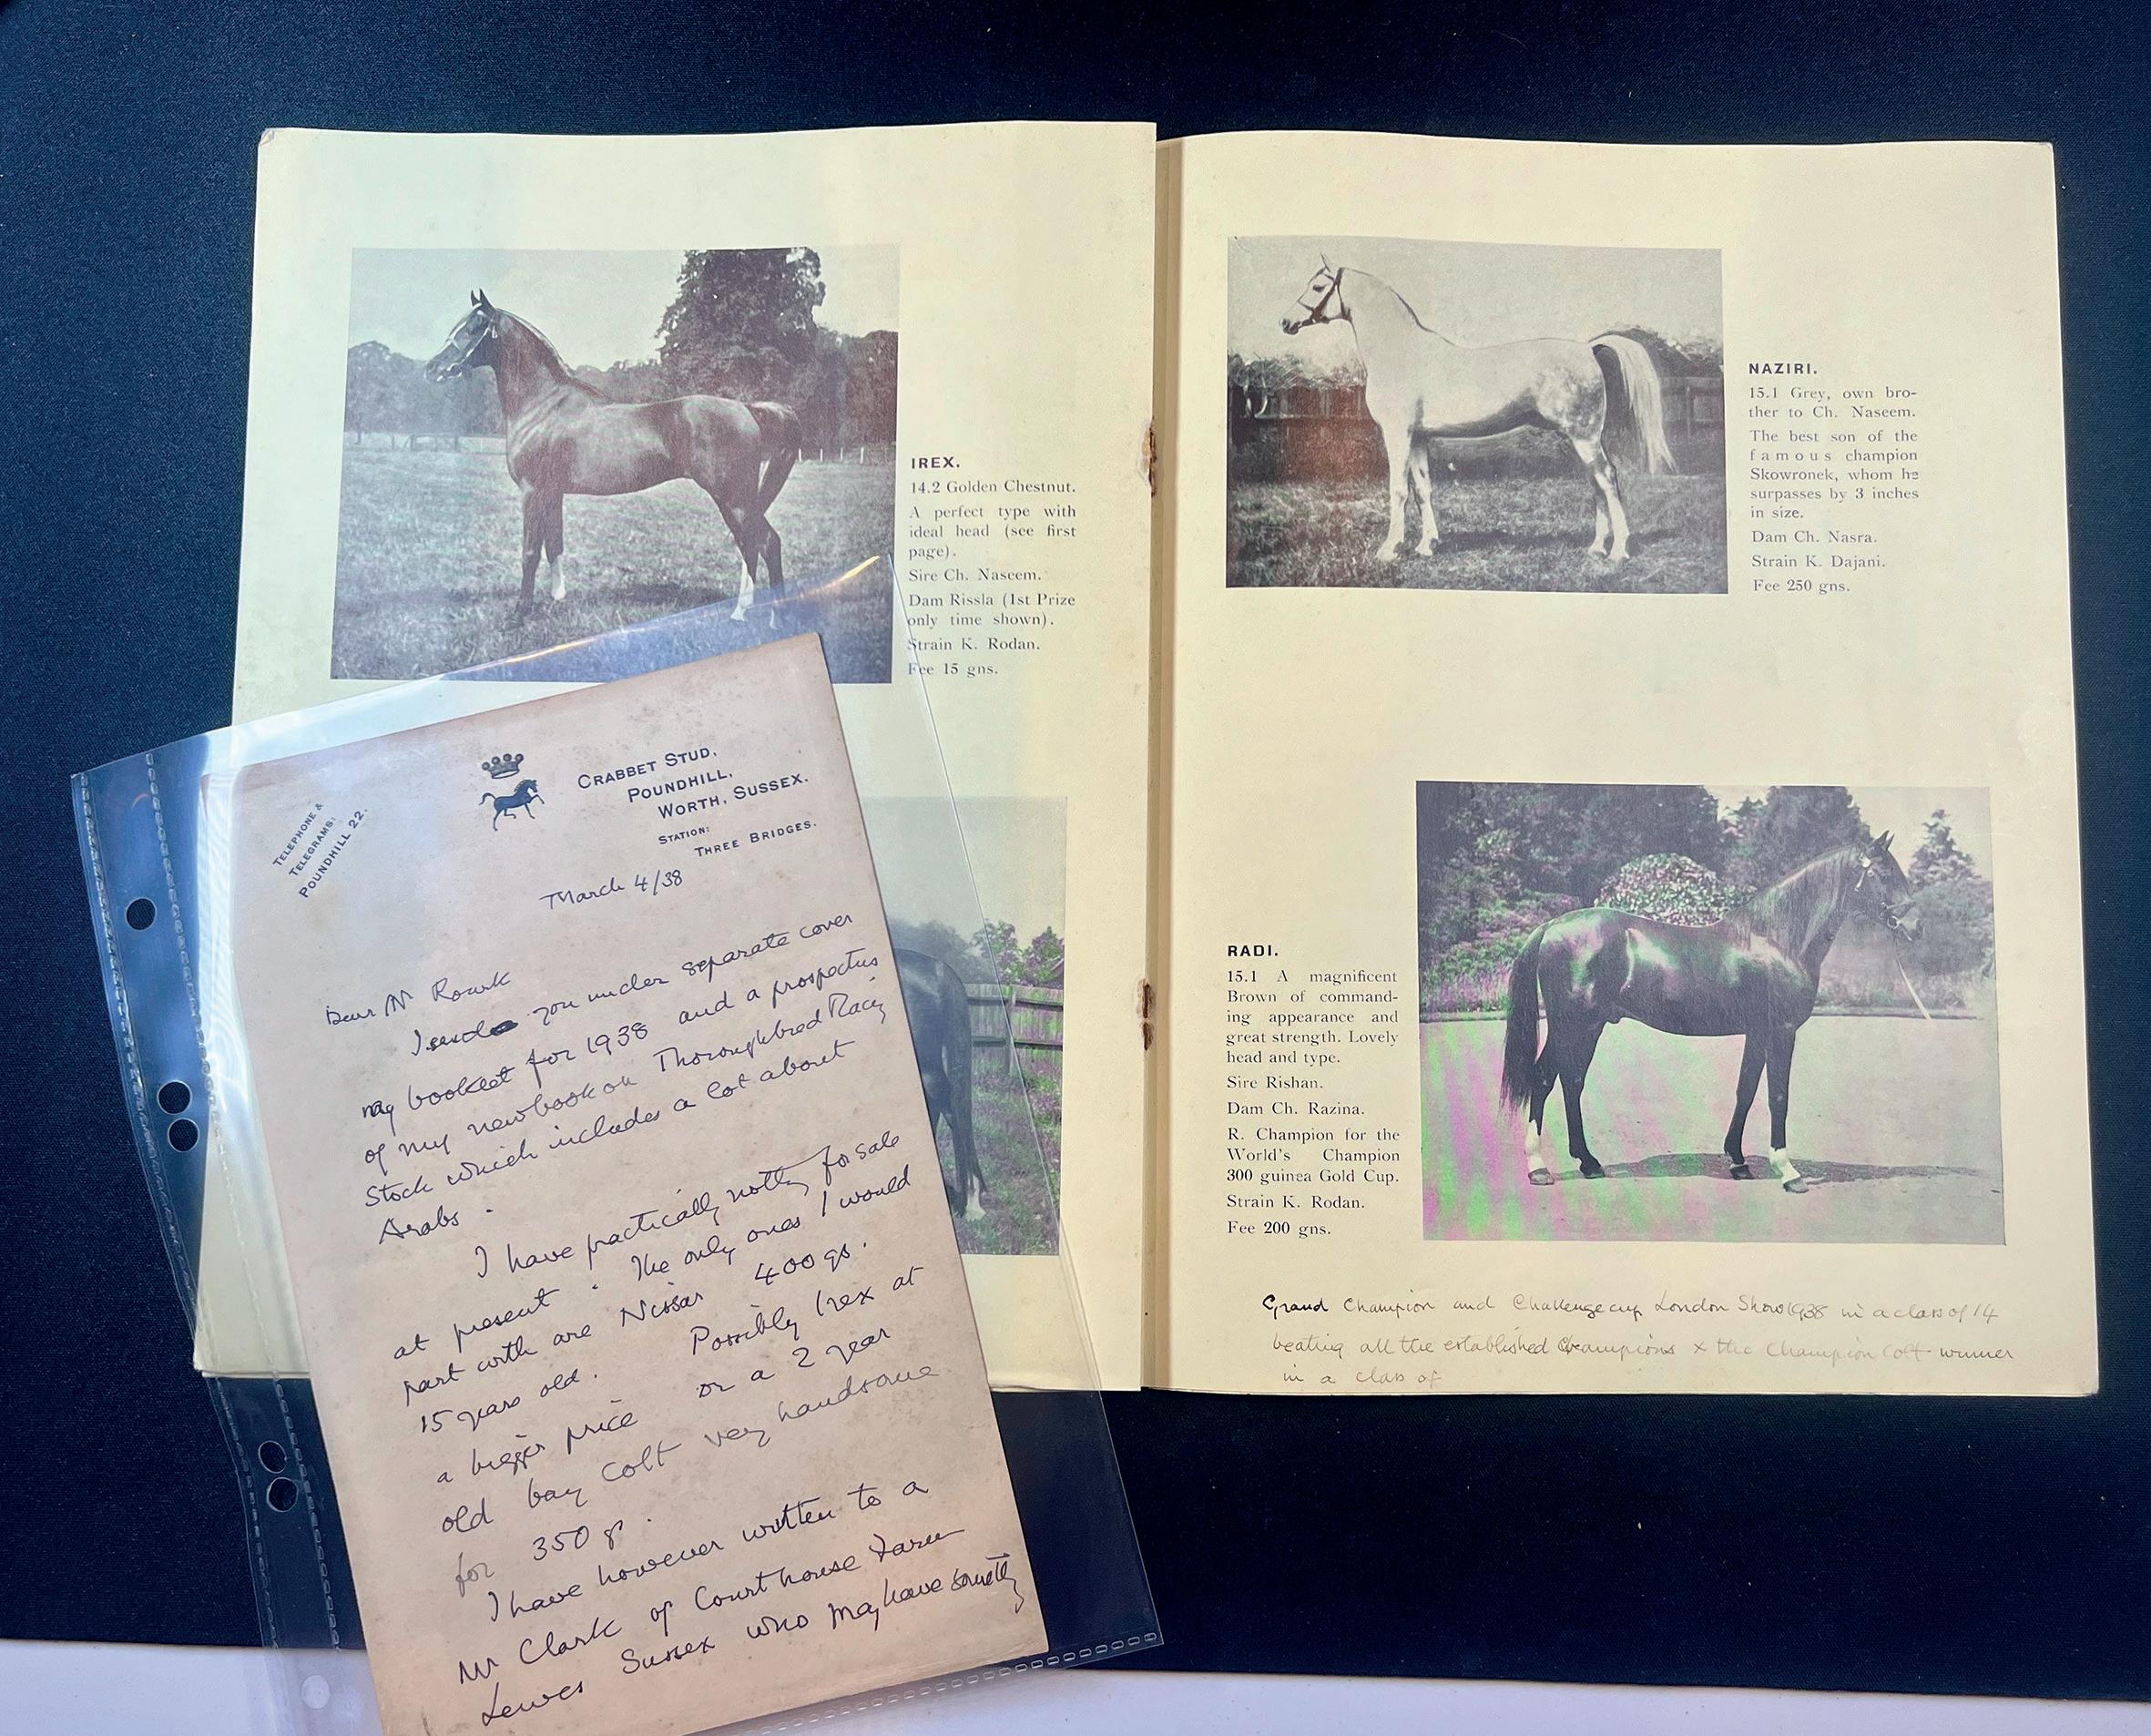 IREX.
14.2 Golden Chestnut.
A perfect type with
ideal head (see first
page).
Sire Ch. Naseem.
Dam Rissla (1st Prize
only time shown).
Strain K. Rodan.
Fee 15 gns.
NAZIRI.
15.1 Grey, own bro-
ther to Ch. Naseem.
The best son of the
famous champion
Skowronek, whom he
surpasses by 3 inches
in size.
Dam Ch. Nasra.
Strain K. Dajani.
Fee 250 gns.
RADI.
15.1 A magnificent
Brown of command-
ing appearance and
great strength. Lovely
head and type.
Sire Rishan.
Dam Ch. Razina.
R. Champion for the
World's Champion
300 guinea Gold Cup.
Strain K. Rodan.
Fee 200 gns.
Grand Champion and Challenge cup London Show 1938 in a class of 14
beating all the established Champions x the Champion Colt winner
in a class of
TELEPHONE &
TELEGRAMS:
POUNDHILL 22.
CRABBET STUD,
POUNDHILL,
WORTH, SUSSEX.
STATION:
THREE BRIDGES.
March 4/38
Dear Mr Rourk
I send you under separate cover
my booklet for 1938 and a prospectus
of my new book on Thoroughbred Racing
Stock which includes a lot about
Arabs.
I have practically nothing for sale
at present. The only ones I would
part with are Nissar 400 gs.
15 years old. Possibly Irex at
a bigger price or a 2 year
old bay colt very handsome
for 350 g.
I have however written to a
Mr Clark of Court house Farm
Lewes Sussex who may have something